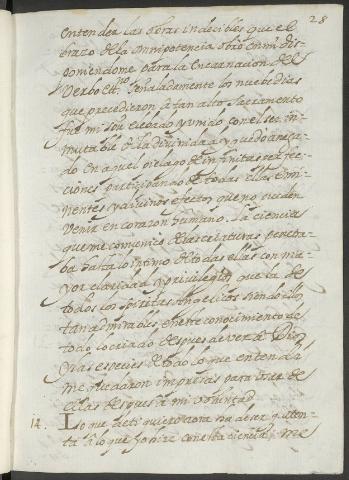 28
entender las obras indecibles que el
brazo de la omnipotencia obró en mi dis-
poniendome para la Encarnacion del
Verbo señaladamente los nuebe dias
que precedieron a tan alto Sacramento
fue mi ser elebado y unido con el ser in-
mutable de la divinidad y quedó anega-
do en aquel pielago de infinitas perfe-
ciones participando de todas ellas emi-
nentes y divinos efectos que no pueden
venir en corazon humano. La ciencia
que me comunicó de las criaturas penetra-
ba hasta lo intimo de todas ellas con ma-
yor claridad y privilegios que la de
todos los spiritus Angelicos siendo ellos
tan admirables en este conocimiento de
todo lo criado despues de ver a Dios
y las especies de todo lo que entendi
me quedaron impresas para usar de
ellas despues a mi voluntad.
14. Lo que de ti quiero aora ha de ser q aten-
ta a lo que yo hize con esta ciencia, me